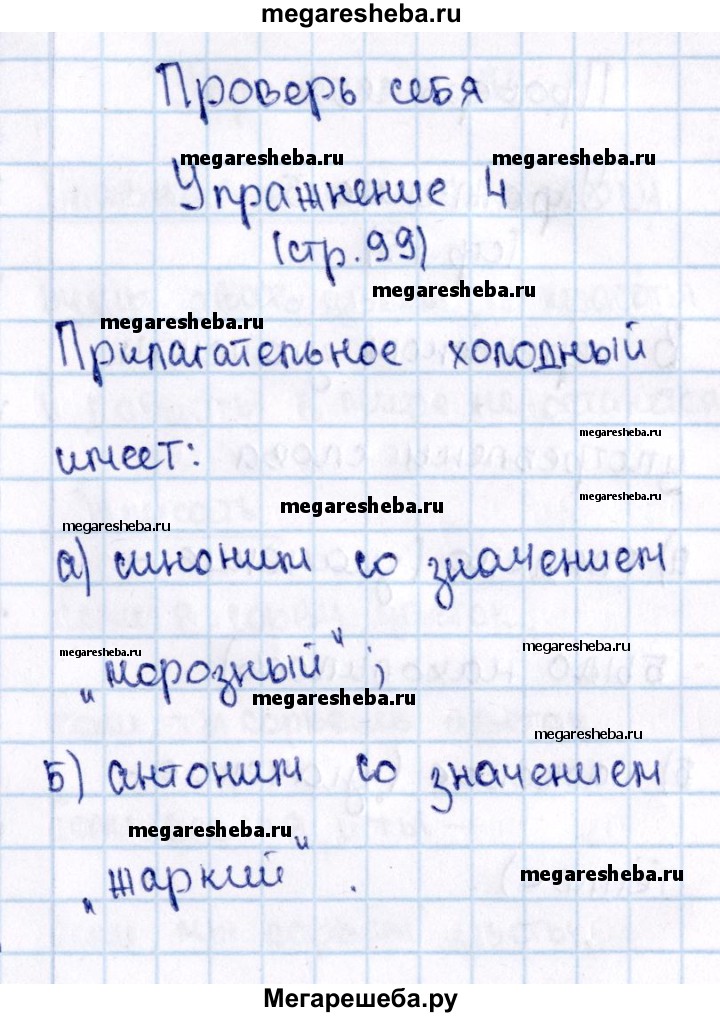 megaresheba.ru
Проверь себя
megaresheba.ru megaresheba.ru
Упражнение 4
(стр. 99)
megaresheba.ru
megaresheba.ru
Прилагательное холодный
megaresheba.ru
имеет:
megaresheba.ru
megaresheba.ru
megaresheba.ru
а) синоним со значением
megaresheba.ru megaresheba.ru
„морозный“;
megaresheba.ru
megaresheba.ru
Б) антоним со значением
megaresheba.ru
megaresheba.ru
„жаркий“.
Мегарешеба.ру